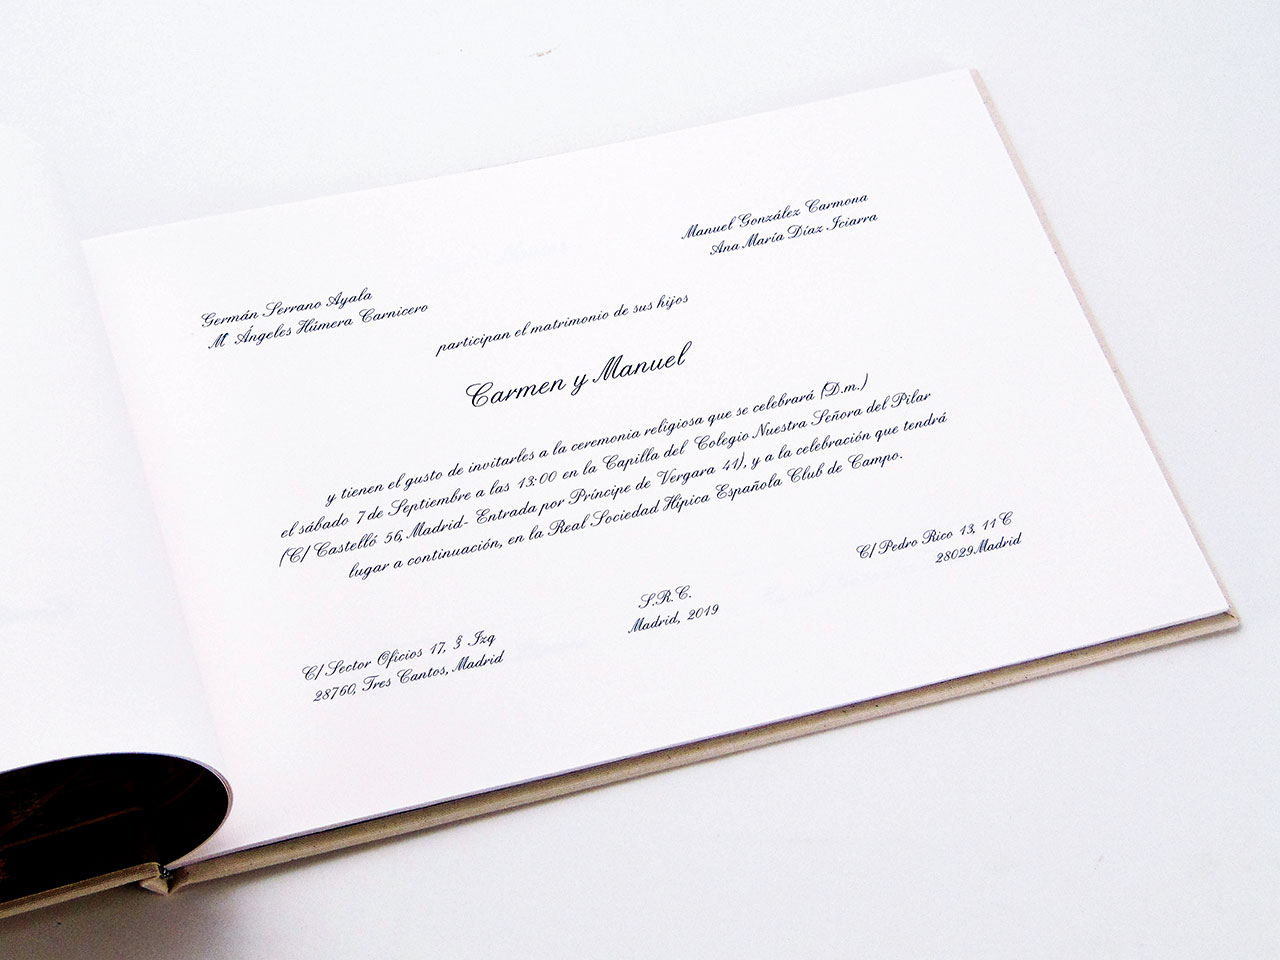 Germán Serrano Ayala
Mª Ángeles Húmera Carnicero
Manuel González Carmona
Ana María Díaz Iciarra
participan el matrimonio de sus hijos
Carmen y Manuel
y tienen el gusto de invitarles a la ceremonia religiosa que se celebrará (D.m.)
el sábado 7 de Septiembre a las 13:00 en la Capilla del Colegio Nuestra Señora del Pilar
(C/ Castelló 56, Madrid- Entrada por Príncipe de Vergara 41), y a la celebración que tendrá
lugar a continuación, en la Real Sociedad Hípica Española Club de Campo.
C/ Sector Oficios 17, § Izq
28760, Tres Cantos, Madrid
S.R.C.
Madrid, 2019
C/ Pedro Rico 13, 11 C
28029 Madrid